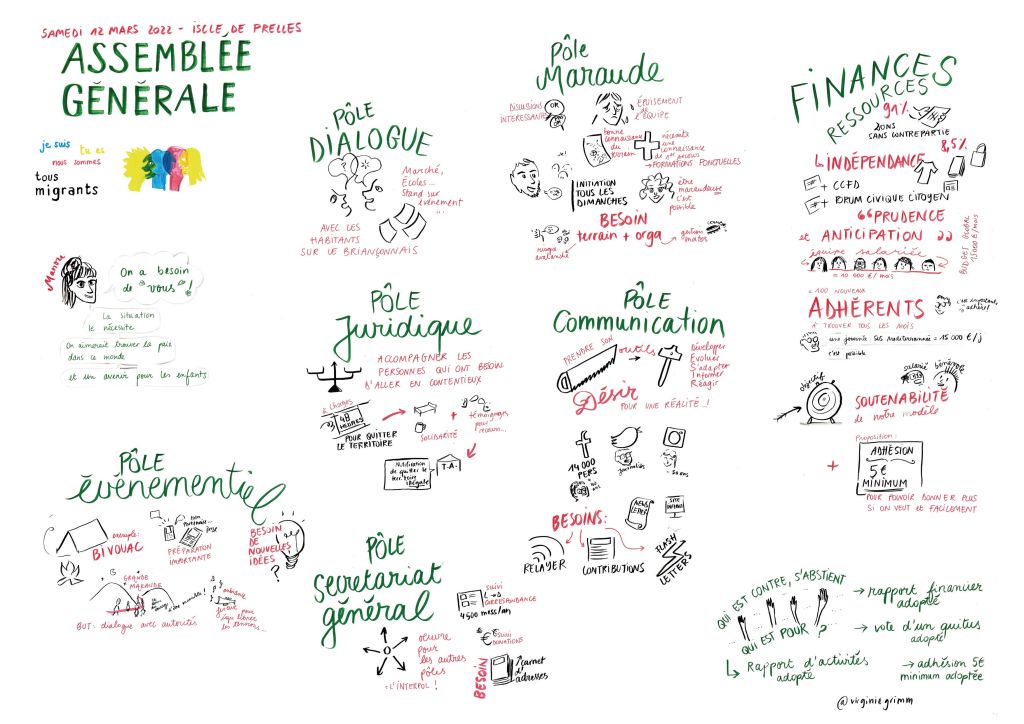 SAMEDI 12 MARS 2022 - ISCLE DE PRELLES
ASSEMBLÉE
GÉNÉRALE
je suis tu es
nous sommes
tous
migrants
Manou
On a besoin
de "vous"!
La situation
le nécessite
On aimerait trouver la paix
dans ce monde
et un avenir pour les enfants
PÔLE
DIALOGUE
Marché,
Écoles...
Stand sur
évènement
...
AVEC LES
HABITANTS
SUR LE BRIANÇONNAIS
PÔLE
Maraude
Discussions
INTERESSANTES
OR
ÉPUISEMENT
DE
L'ÉQUIPE
bonne
connaissance
du
terrain
nécessite
une
connaissance
de 1er secours
→ FORMATIONS PONCTUELLES
INITIATION
TOUS LES
DIMANCHES
être
maraudeuse
c'est
possible
BESOIN
terrain + orga
risque
avalanche
gestion
matos
FINANCES
RESSOURCES
91%
DONS
SANS CONTREPARTIE
8,5%
L'INDÉPENDANCE
+ CCFD
+ FORUM CIVIQUE CITOYEN
"PRUDENCE
et ANTICIPATION"
équipe salariée
= 10 600 €/mois
BUDGET GLOBAL
15000 €/mois
= 100 NOUVEAUX
ADHÉRENTS
À TROUVER TOUS LES MOIS
c'est important,
adhérer!
une journée SOS méditerrannée = 15 000 €/j
c'est possible
objectifs
salarié bénévole
SOUTENABILITÉ
de notre modèle
Proposition:
+
ADHÉSION
5€
MINIMUM
POUR POUVOIR DONNER PLUS
SI ON VEUT ET FACILEMENT
PÔLE
Juridique
ACCOMPAGNER LES
PERSONNES QUI ONT BESOIN
D'ALLER EN CONTENTIEUX
48
HEURES
POUR QUITTER
LE TERRITOIRE
SOLIDARITÉ
+
témoignages
pour
recours...
Notification
de quitter le
territoire
illégale
T.A.
PÔLE
Communication
PRENDRE SON
outils
Développer
Évoluer
S'adapter
Informer
Réagir
Désir
POUR UNE RÉALITÉ..!
14 000
PERS
journalistes
BESOINS:
NEWS
LETTER
SITE
INTERNET
RELAYER
CONTRIBUTIONS
FLASH
LETTERS
PÔLE
évènementiel
exemple:
BIVOUAC
presse
PRÉPARATION
IMPORTANTE
BESOIN
DE
NOUVELLES
IDÉES
?
GRANDE
MARAUDE
ambiance
BUT: dialogue avec autorités
PÔLE
secrétariat
général
SUIVI
CORRESPONDANCE
4500 mess/an
oeuvre
pour
les autres
pôles
= L'INTERPOL!
SUIVI
DONATIONS
BESOIN
carnet
d'
adresses
QUI EST CONTRE, S'ABSTIENT
QUI EST POUR ?
→ rapport financier
adopté
→ vote d'un quitus
adopté
Rapport d'activités
adopté
→ adhésion 5€
minimum adoptée
@virginiegrimm